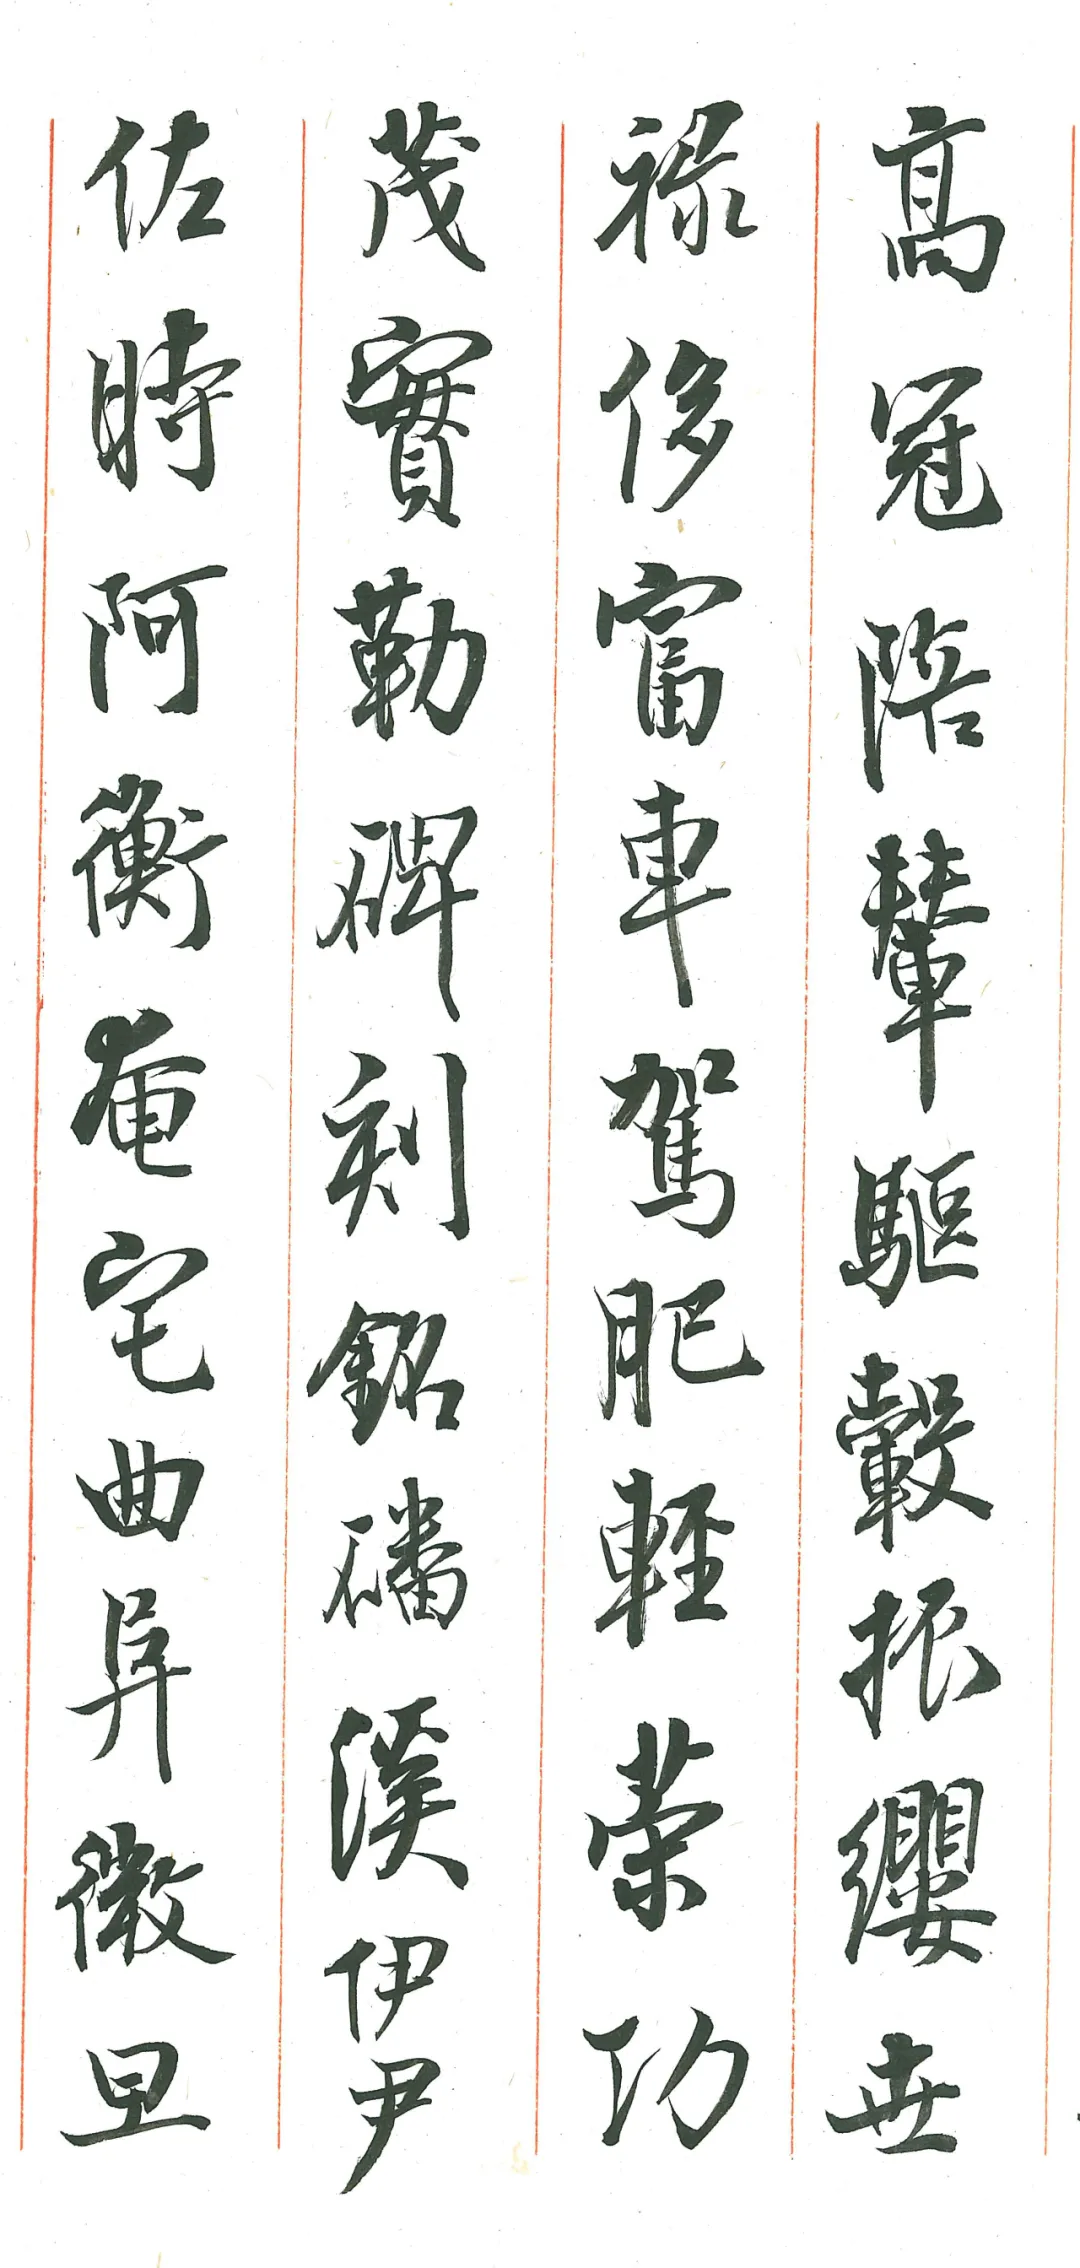 高冠陪輦驅轂振纓世
祿侈富車駕肥輕策功
茂實勒碑刻銘磻溪伊尹
佐時阿衡奄宅曲阜微旦